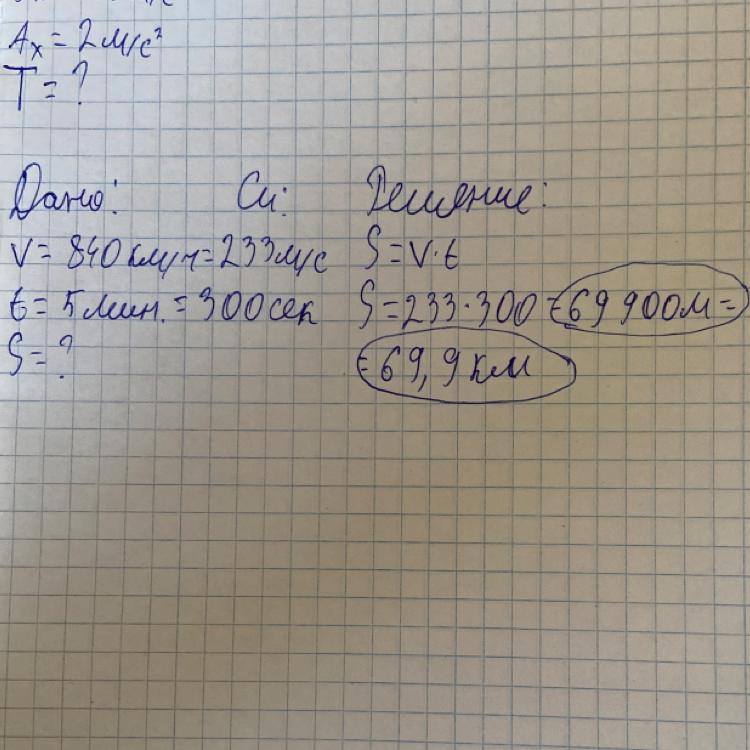 Ax = 2 м/с²
T = ?
Дано: Си: Решение:
V = 840 км/ч = 233 м/с S = V · t
t = 5 мин. = 300 сек S = 233 · 300 = 69 900 м =
S = ? = 69,9 км